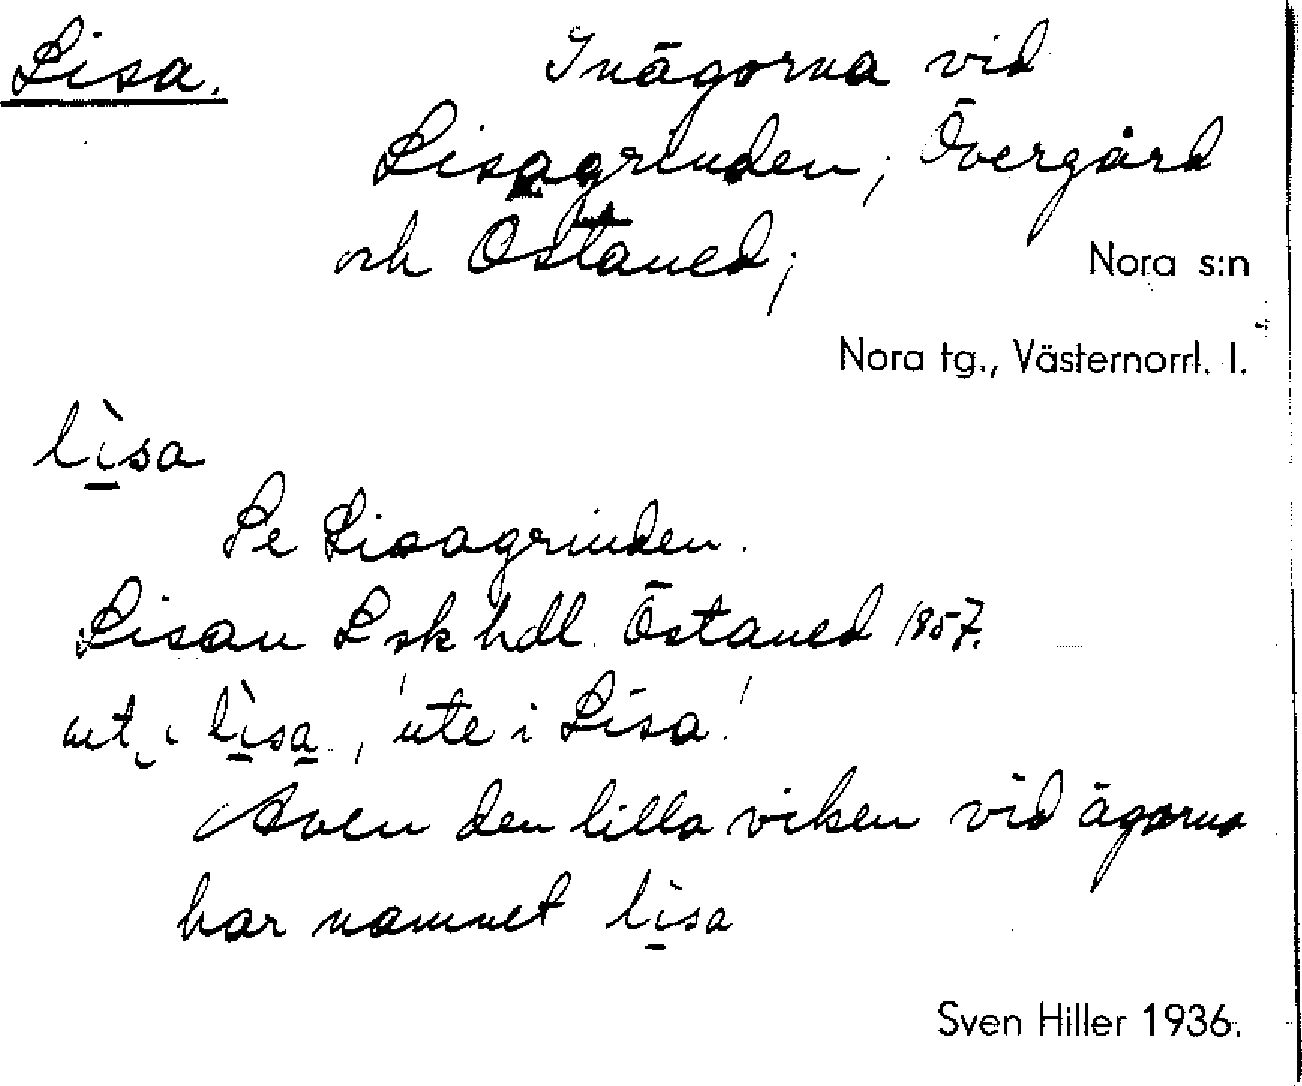 Lisa.
Inägorna vid
Lisagrinden, Övergård
och Östaned,
Nora s:n
Nora tg., Västernorrl. l.
lìsa
Se Lisagrinden.
Lisan Lskhdl. Östaned 1857.
ut i lìsa, 'ute i Lisa'
Även den lilla viken vid ägorna
har namnet lisa
Sven Hiller 1936.